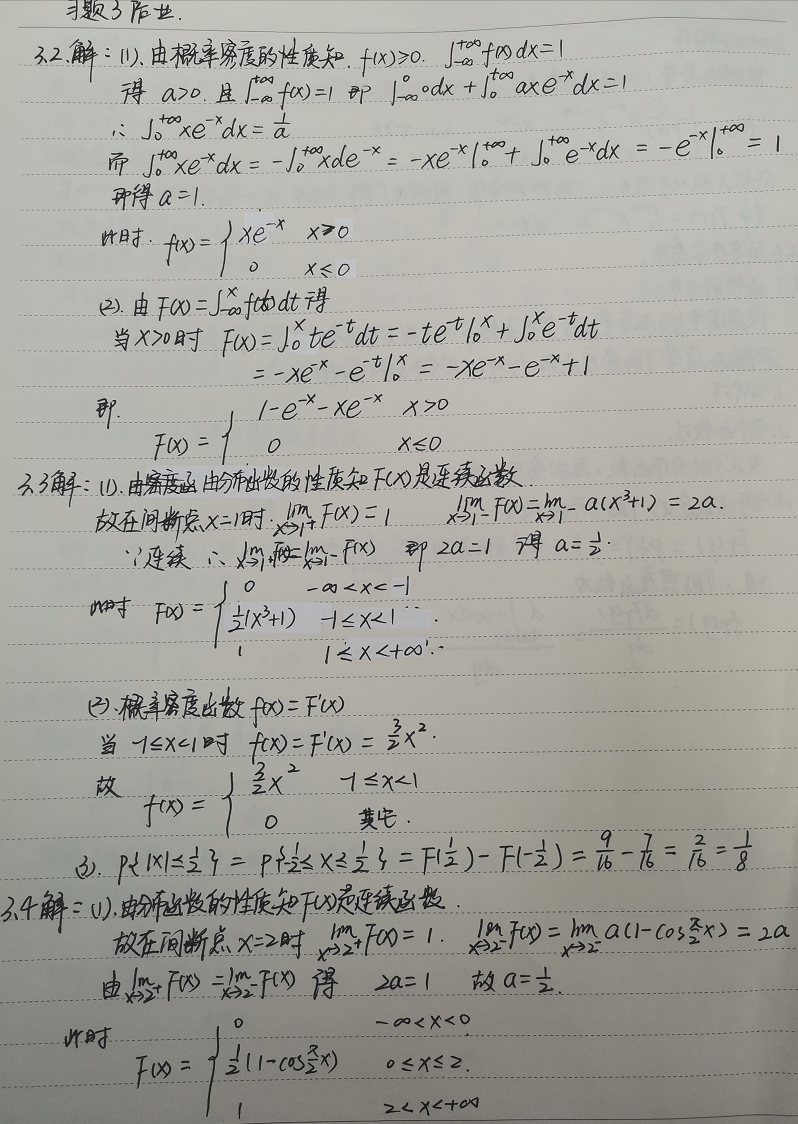 习题3作业.
3.2.解: (1).由概率密度的性质知. f(x)≥0. ∫_{-∞}^{+∞} f(x)dx=1
得 a>0. 且 ∫_{-∞}^{+∞} f(x)=1 即 ∫_{-∞}^{0} 0dx + ∫_0^{+∞} axe^{-x}dx=1
∴ ∫_0^{+∞} xe^{-x}dx = 1/a
而 ∫_0^{+∞} xe^{-x}dx = -∫_0^{+∞} xde^{-x} = -xe^{-x}|_0^{+∞} + ∫_0^{+∞} e^{-x}dx = -e^{-x}|_0^{+∞} = 1
即得 a=1.
此时. f(x) = { xe^{-x} x>0
0 x≤0
(2). 由 F(x)=∫_{-∞}^{x} f(t)dt 得
当 x>0时 F(x)=∫_0^x te^{-t}dt = -te^{-t}|_0^x + ∫_0^x e^{-t}dt
= -xe^{-x} - e^{-t}|_0^x = -xe^{-x} - e^{-x} + 1
即. F(x) = { 1-e^{-x}-xe^{-x} x>0
0 x≤0
3.3解: (1).由密度函由分布函数的性质知 F(x)是连续函数.
故在间断点x=1时. lim_{x→1+} F(x)=1 lim_{x→1-} F(x)=lim_{x→1-} a(x³+1) = 2a.
∵连续 ∴ lim_{x→1+} F(x)=lim_{x→1-} F(x) 即 2a=1 得 a=1/2.
此时 F(x) = { 0 -∞<x<-1
1/2(x³+1) -1≤x<1
1 1≤x<+∞
(2).概率密度函数 f(x)=F'(x)
当 -1≤x<1时 f(x)=F'(x) = 3/2 x².
故 f(x) = { 3/2 x² -1≤x<1
0 其它.
(3). P{|x|≤1/2} = P{-1/2≤x≤1/2} = F(1/2)-F(-1/2) = 9/16 - 7/16 = 2/16 = 1/8
3.4解: (1).由分布函数的性质知F(x)是连续函数.
故在间断点 x=2时 lim_{x→2+} F(x)=1. lim_{x→2-} F(x)=lim_{x→2-} a(1-cos π/2 x) = 2a
由 lim_{x→2+} F(x) = lim_{x→2-} F(x) 得 2a=1 故 a=1/2.
此时 F(x) = { 0 -∞<x<0
1/2(1-cos π/2 x) 0≤x≤2.
1 2<x<+∞